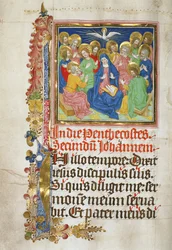 In die Penthecostes.
Secundũ Johannem
In illo tempore: Dixit
iesus discipulis suis.
Si quis diligit me: ser
monẽ meum serva
bit. Et pater meus di